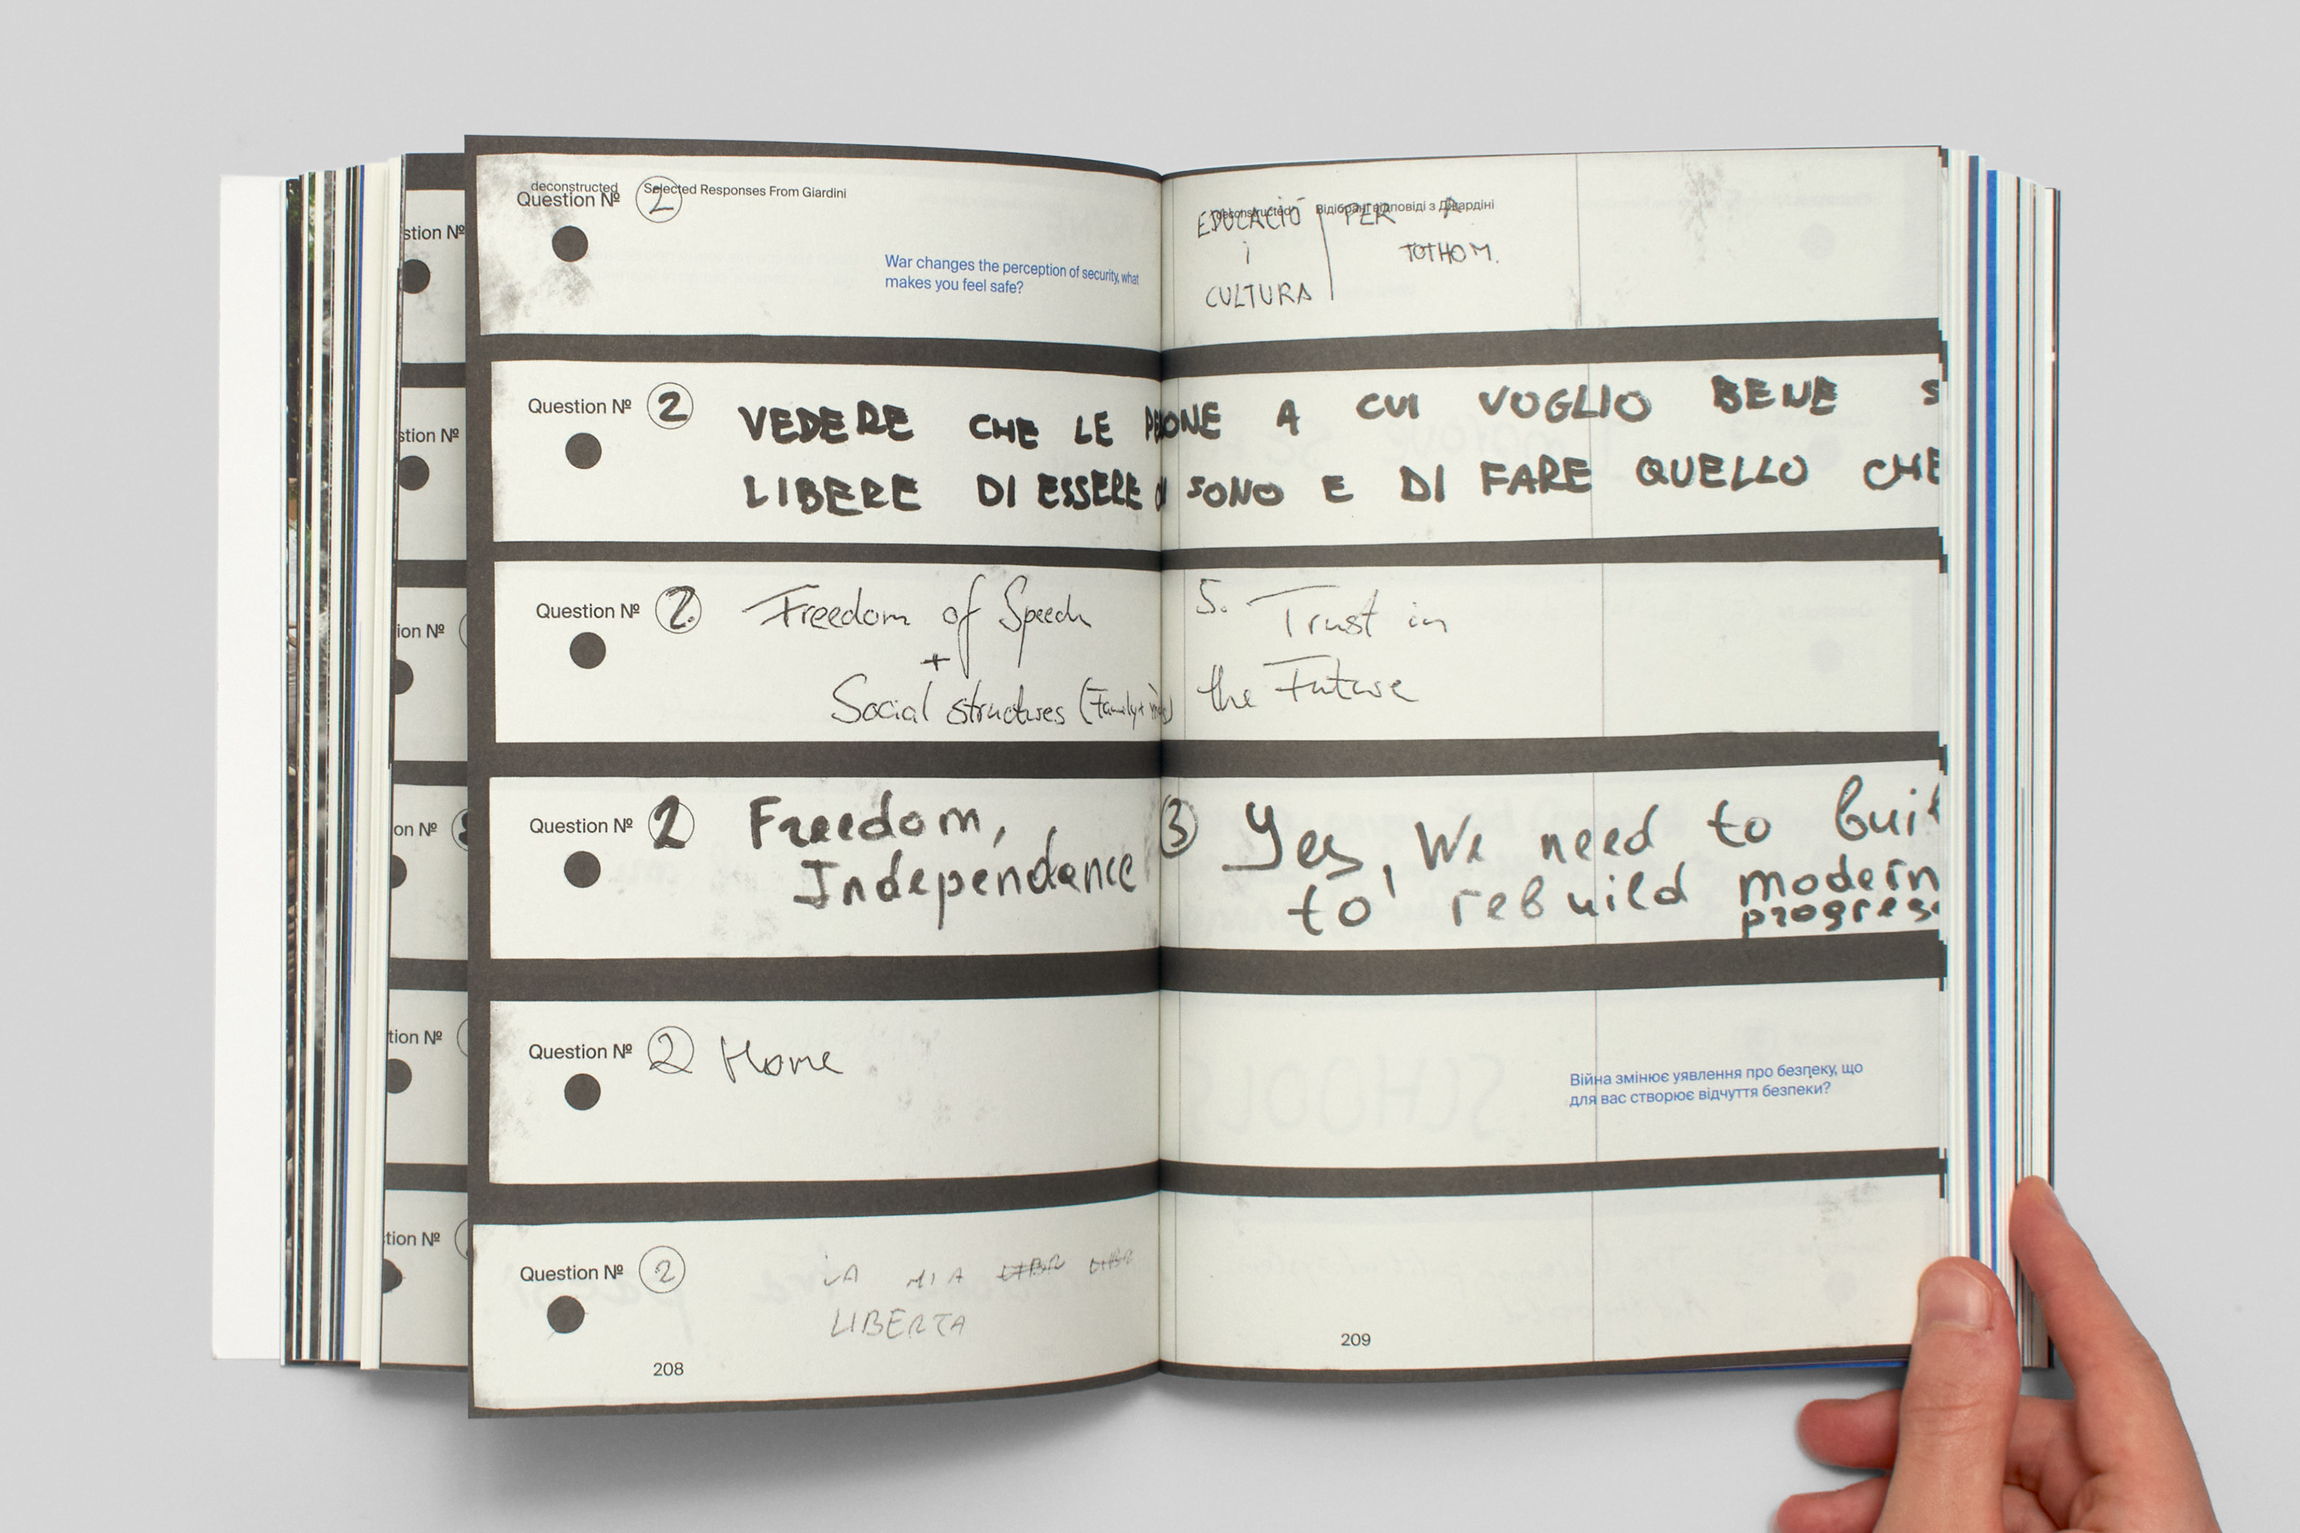 deconstructed Selected Responses From Giardini
Question № 2
War changes the perception of security, what
makes you feel safe?
deconstructed Відібрані відповіді з Джардіні
EDUCACIÓ PER A
i TOTHOM.
CULTURA
Question № 2 VEDERE CHE LE PERSONE A CUI VOGLIO BENE S
LIBERE DI ESSERE SONO E DI FARE QUELLO CHE
Question № 2. Freedom of Speech
+
Social structures (Family+
5. Trust in
the Future
Question № 2 Freedom,
Independance
3 Yes, We need to buil
to rebuild modern
progres
Question № 2 Home
Війна змінює уявлення про безпеку, що
для вас створює відчуття безпеки?
Question № 2 LA MIA
LIBERTA
208
209
stion №
stion №
ion №
on №
tion №
tion №